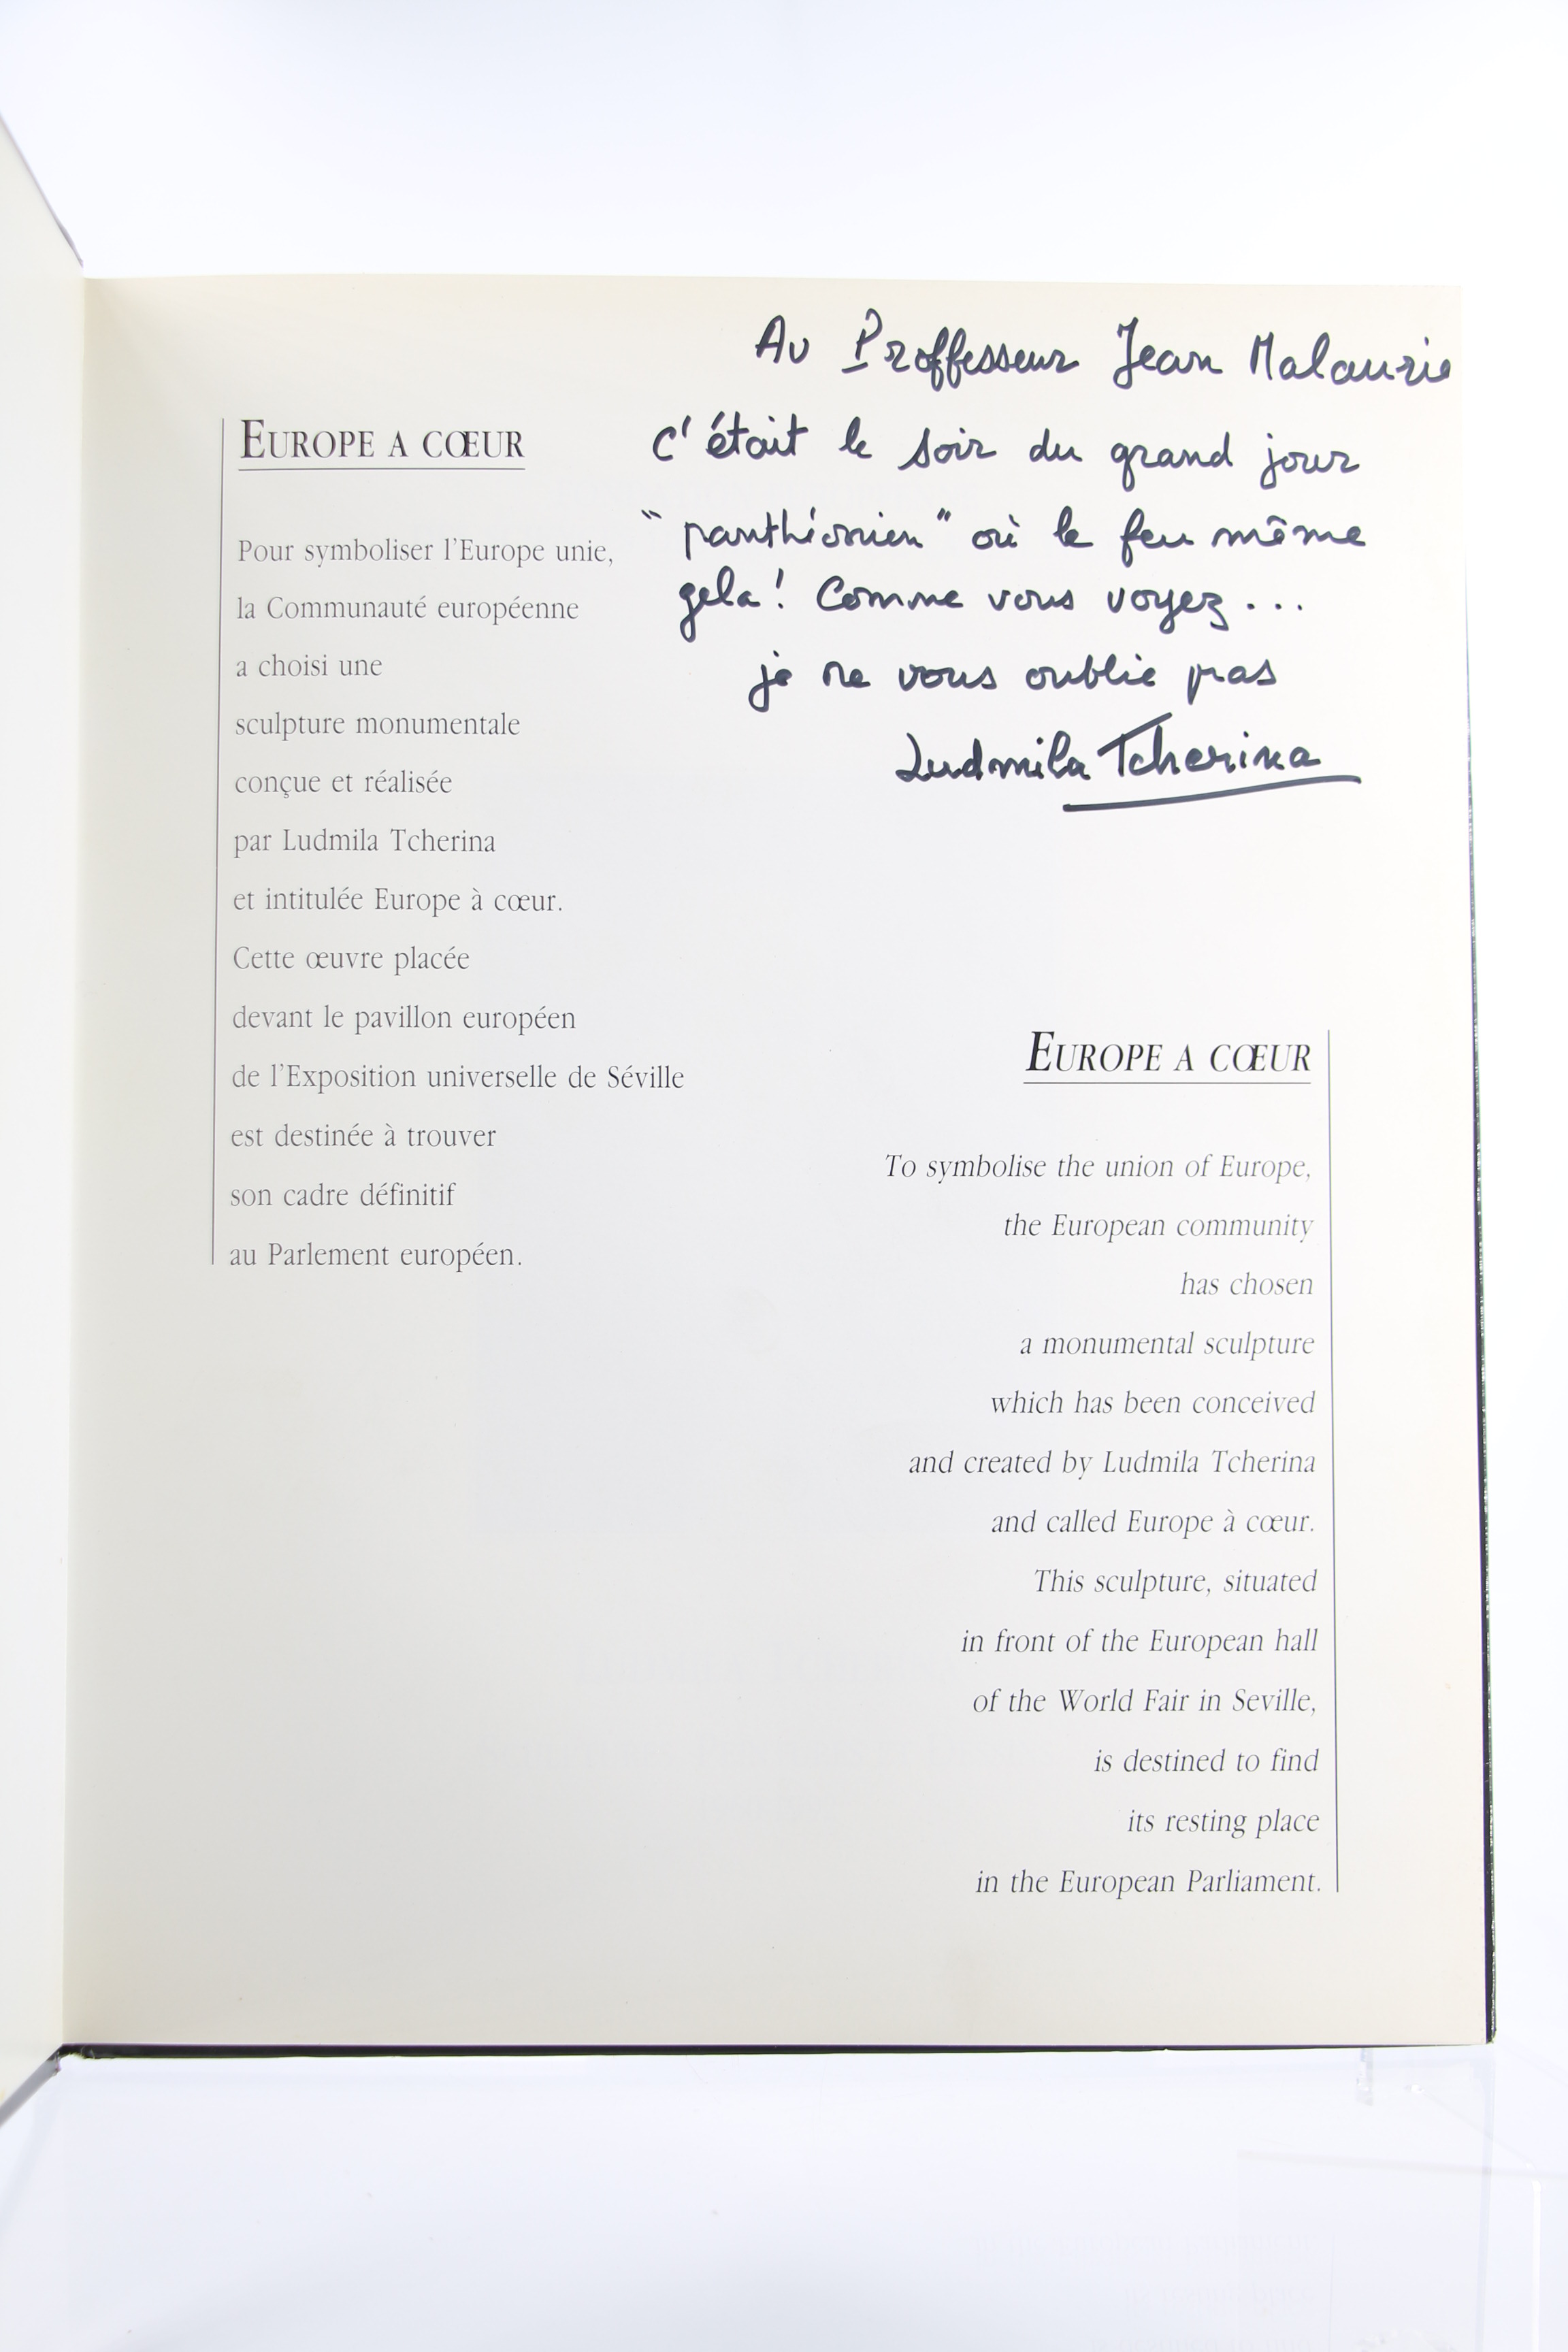 Au Proffesseur Jean Malaurie
C'était le soir du grand jour
"panthéonien" où le feu même
gela! Comme vous voyez...
je ne vous oublie pas
Ludmila Tcherina
EUROPE A CŒUR
Pour symboliser l'Europe unie,
la Communauté européenne
a choisi une
sculpture monumentale
conçue et réalisée
par Ludmila Tcherina
et intitulée Europe à cœur.
Cette œuvre placée
devant le pavillon européen
de l'Exposition universelle de Séville
est destinée à trouver
son cadre définitif
au Parlement européen.
EUROPE A CŒUR
To symbolise the union of Europe,
the European community
has chosen
a monumental sculpture
which has been conceived
and created by Ludmila Tcherina
and called Europe à cœur.
This sculpture, situated
in front of the European hall
of the World Fair in Seville,
is destined to find
its resting place
in the European Parliament.